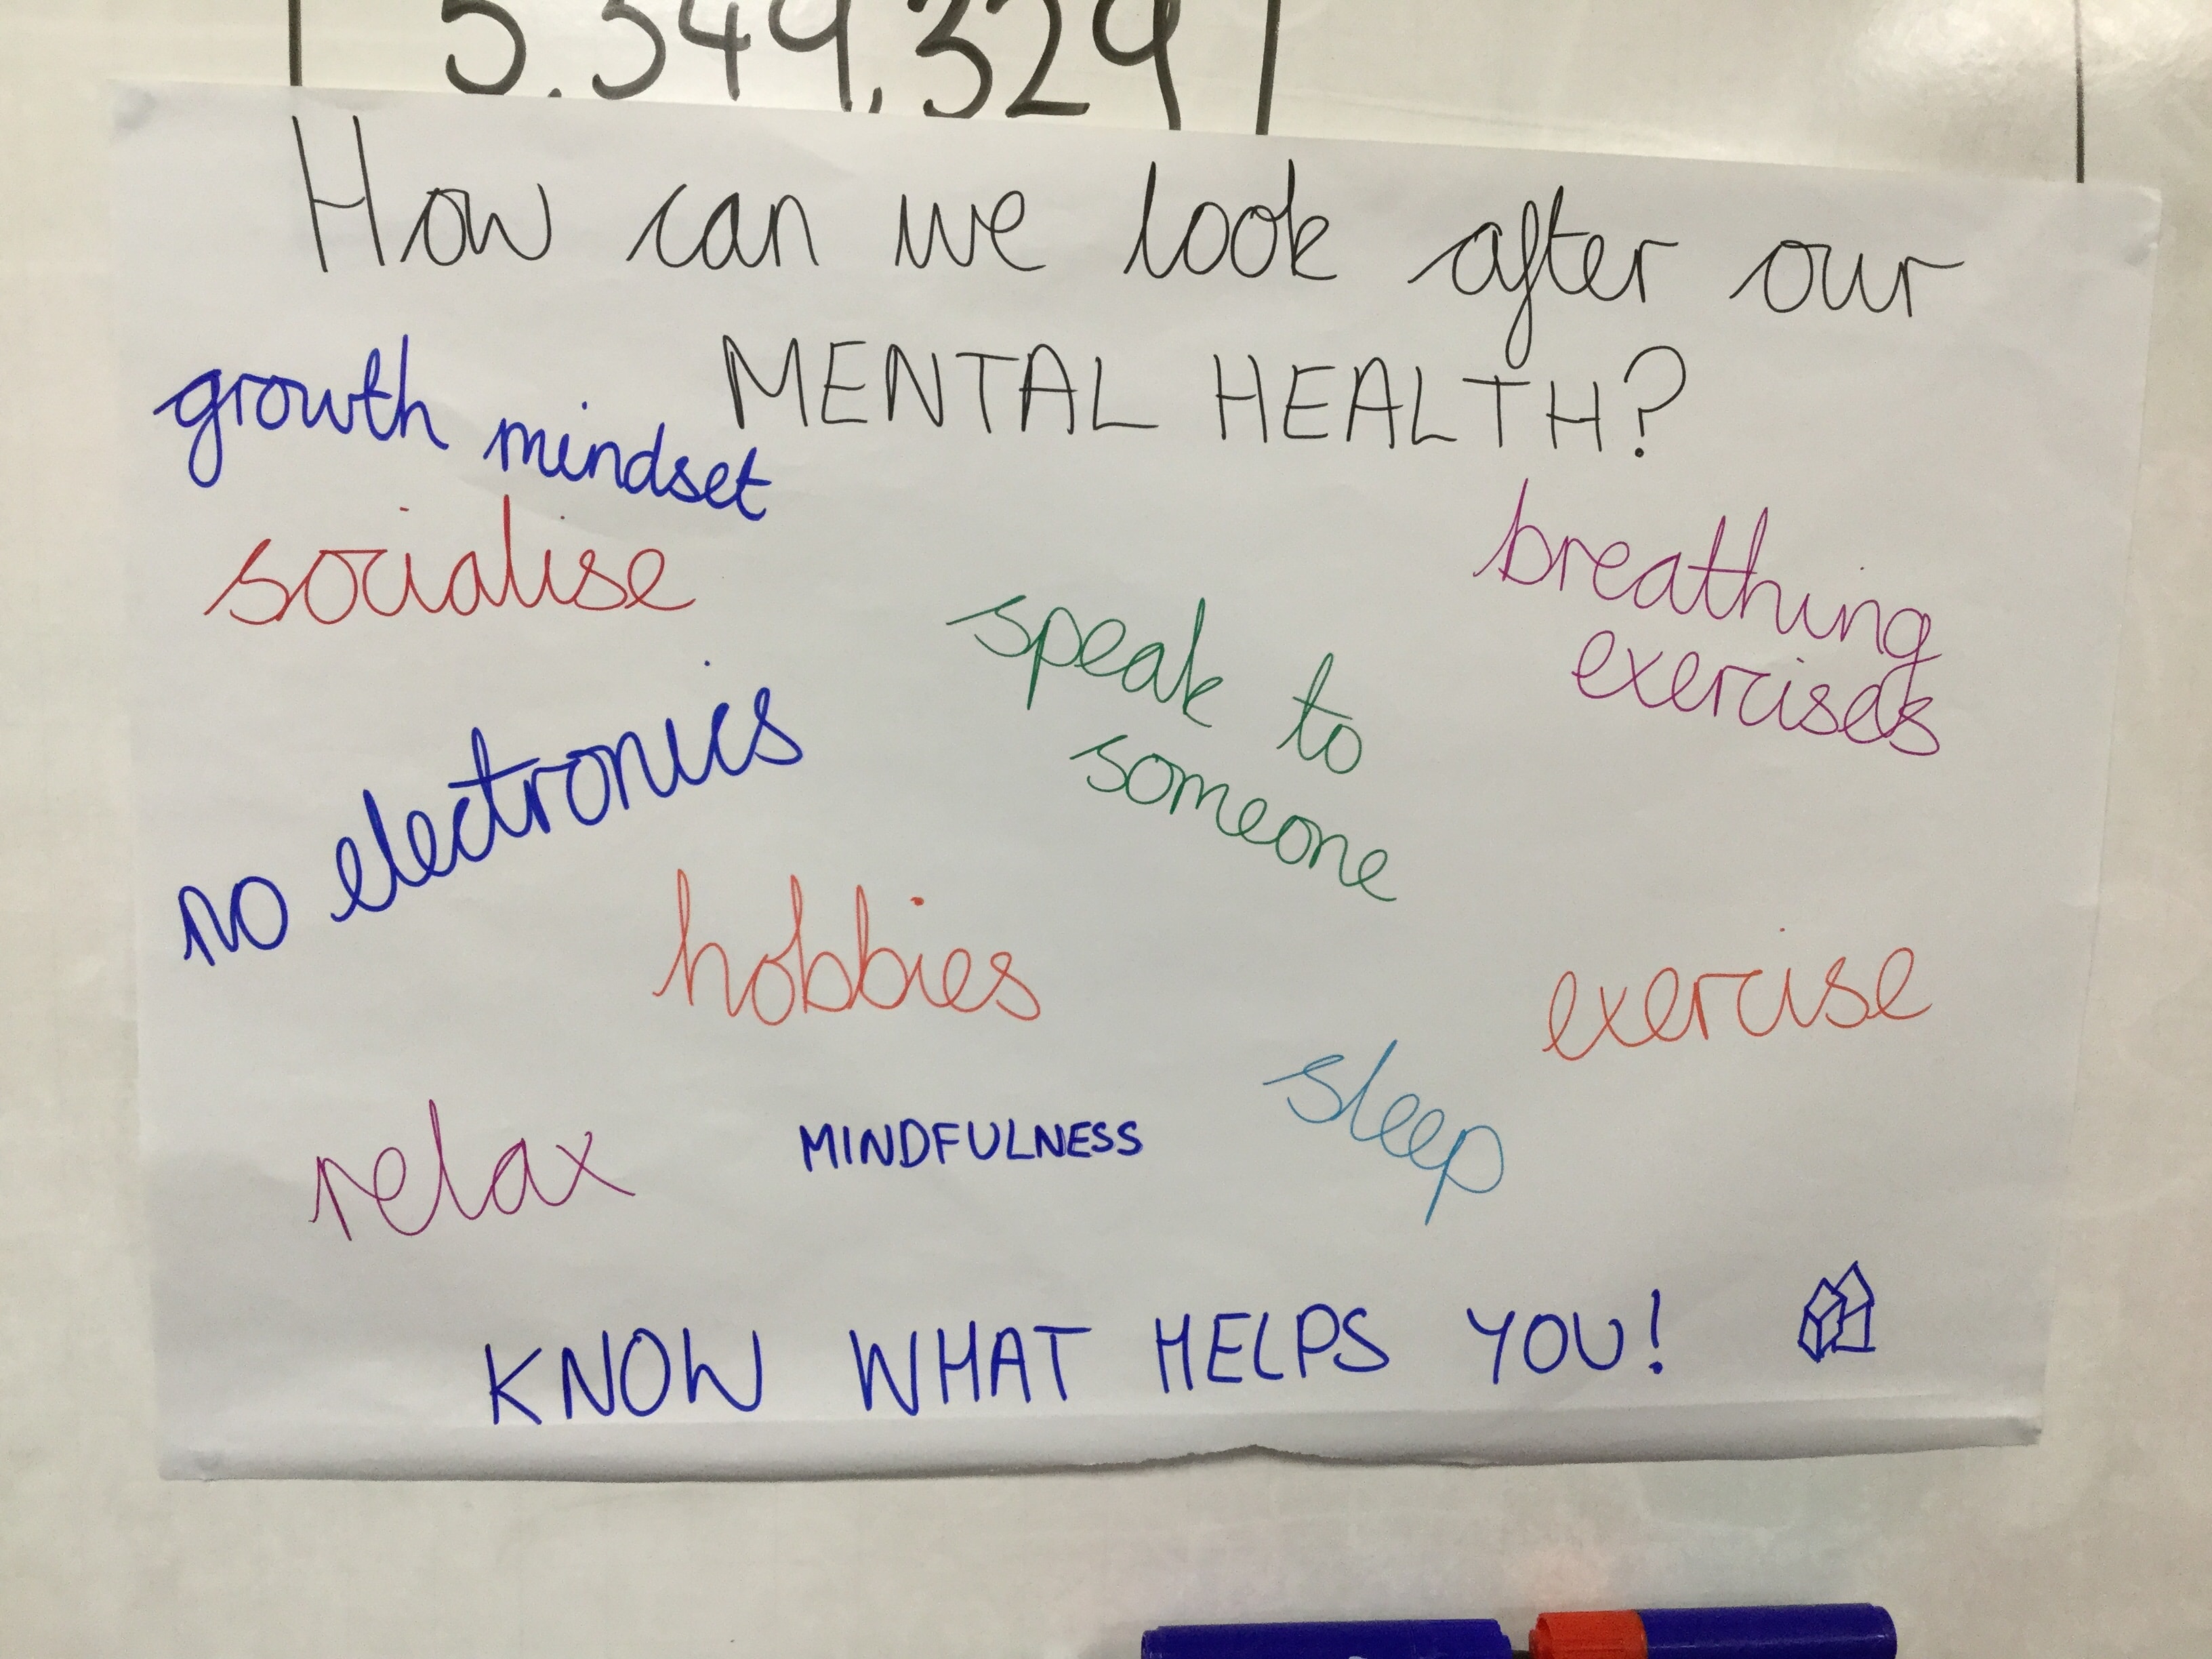 5,349,329
How can we look after our
MENTAL HEALTH?
growth mindset
socialise
breathing
exercises
speak to
someone
no electronics
hobbies
exercise
sleep
relax
MINDFULNESS
KNOW WHAT HELPS YOU!